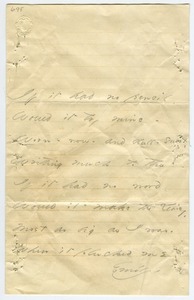 695
If it had no pencil
Would it try mine -
Worn - now - and dull - sweet,
Writing much to thee.
If it had no word
Would it make the Daisy,
Most as big as I was,
When it plucked me?
Emily